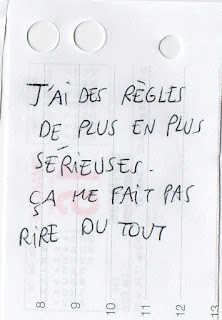 J'AI DES RÈGLES
DE PLUS EN PLUS
SÉRIEUSES.
ÇA ME FAIT PAS
RIRE DU TOUT
8
9
10
11
12
13